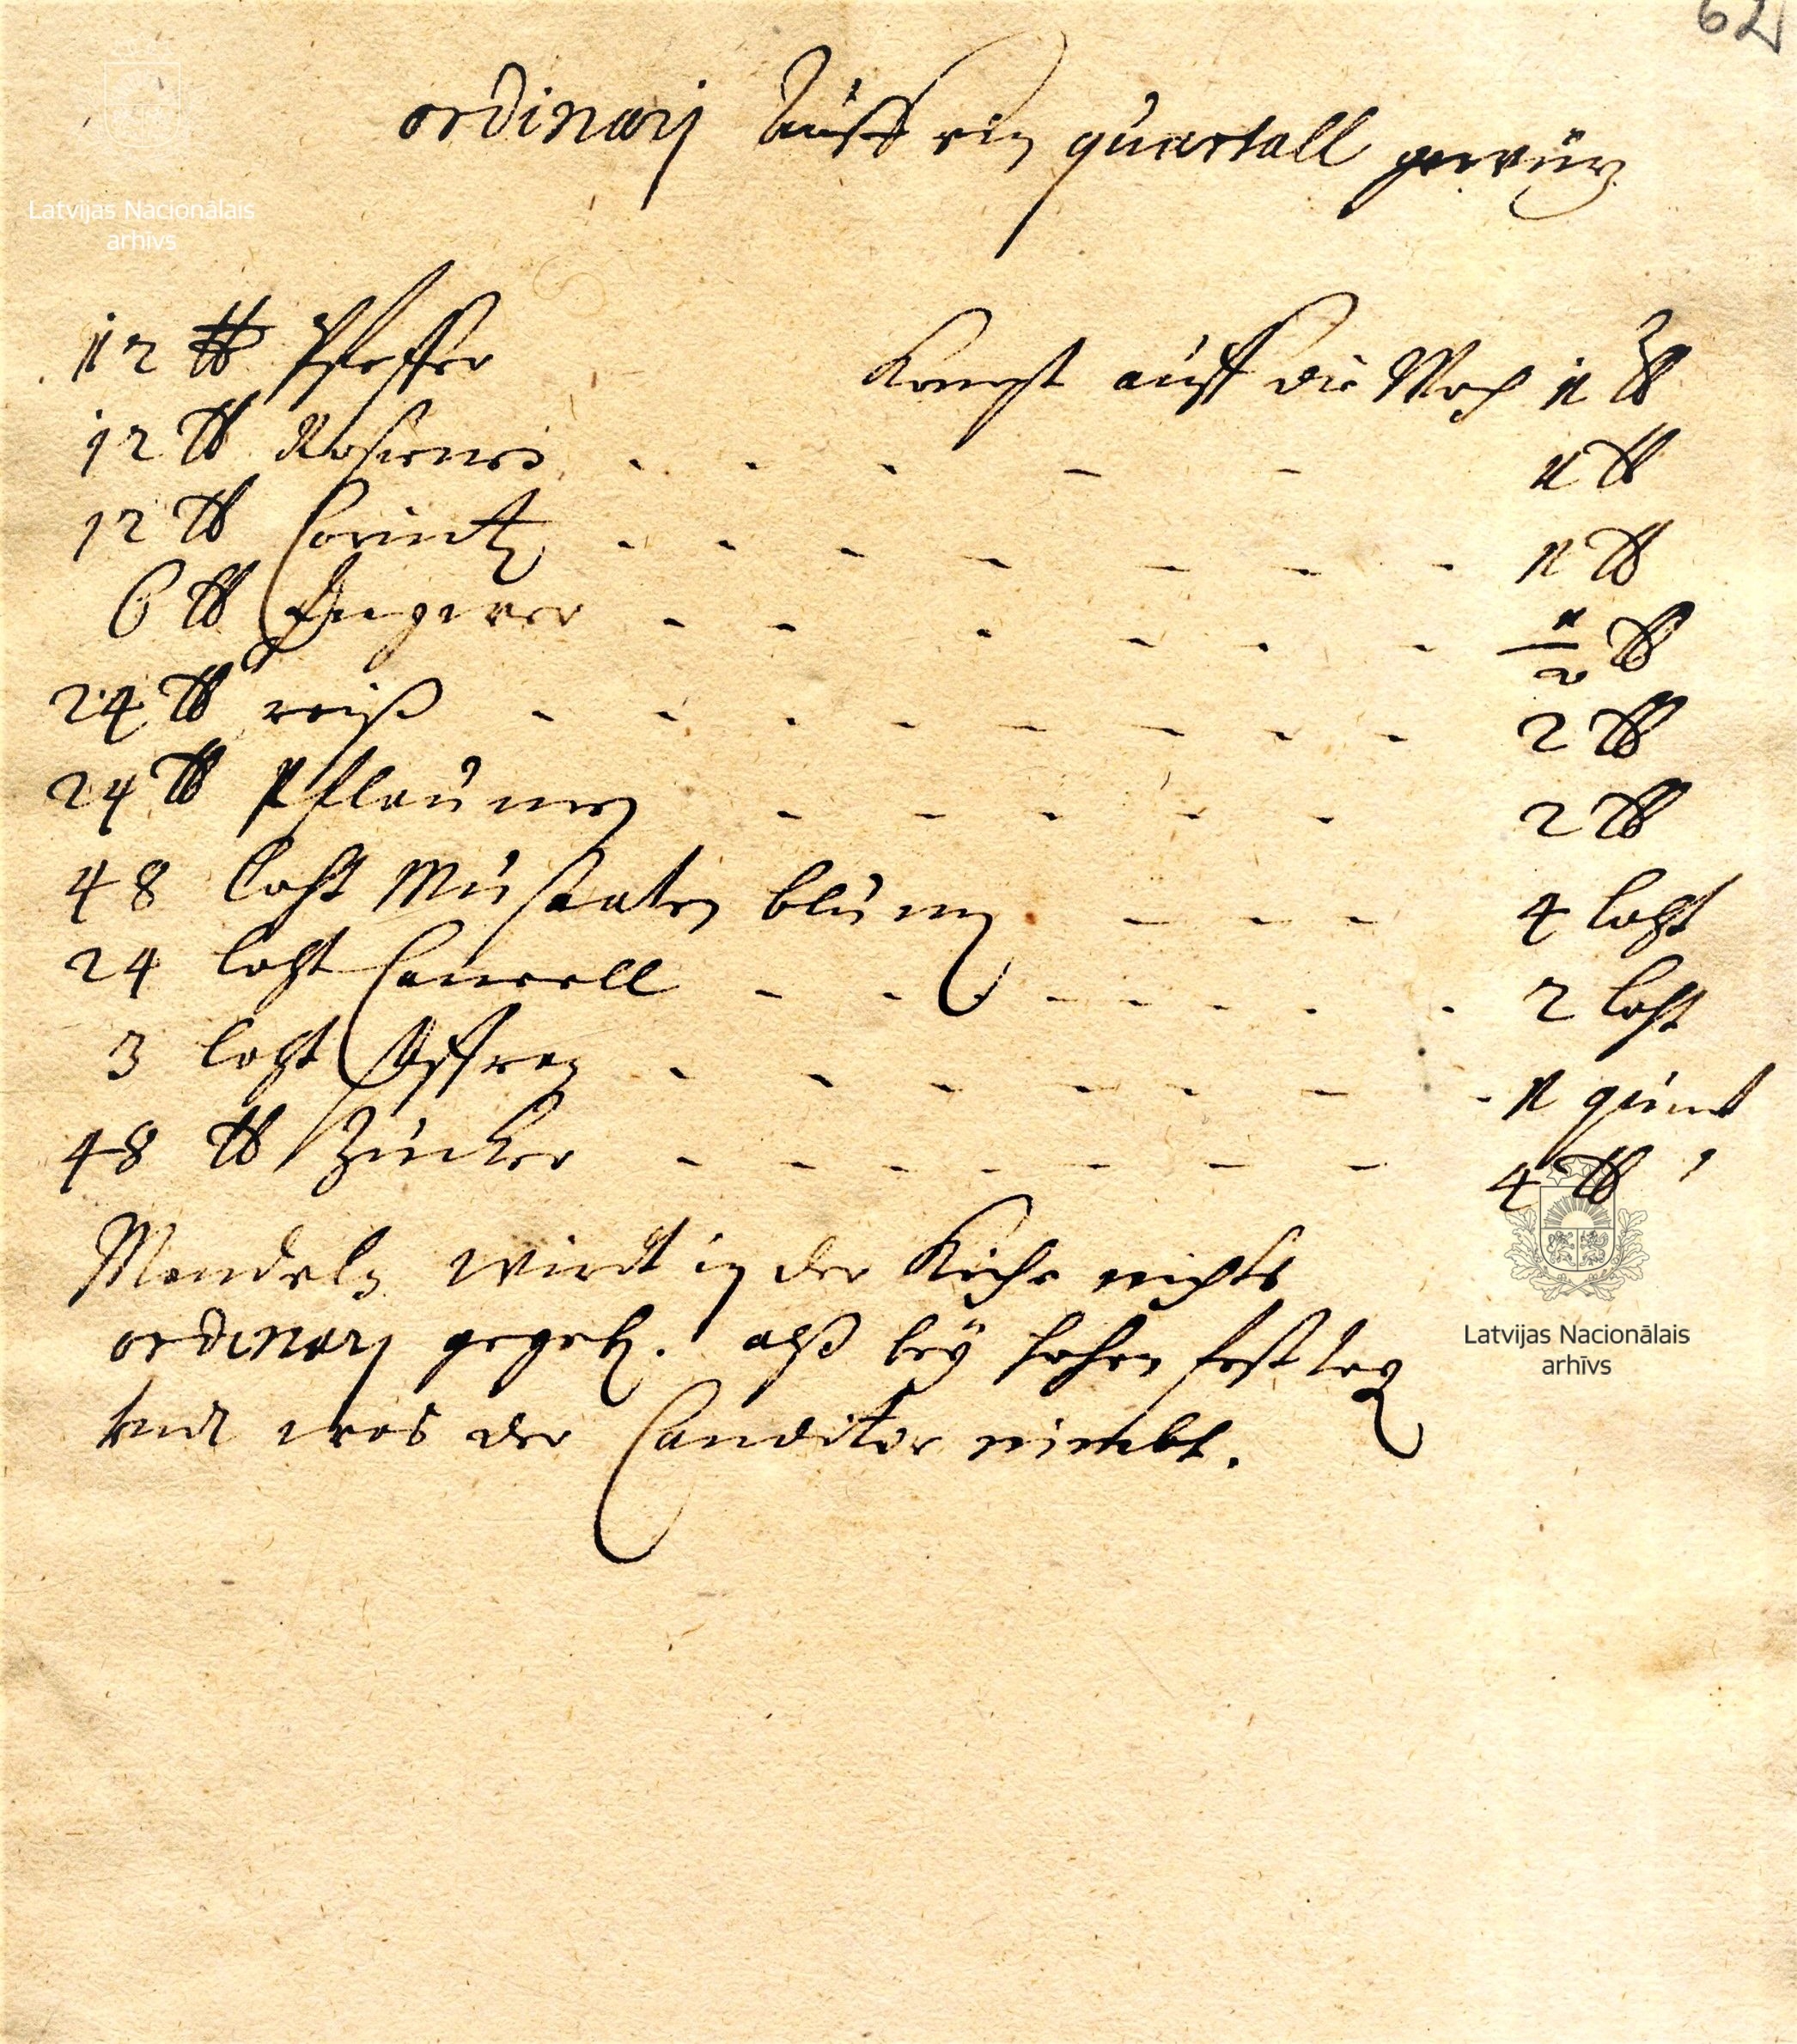 62
Latvijas Nacionālais
arhīvs
ordinarj Auff ein quartall gewürz
12 ℔ Pfeffer Kompt auff die Woch 1 ℔
12 ℔ Rosienen - - - - - 1 ℔
12 ℔ Corintz - - - - - - - 1 ℔
6 ℔ Ingwer - - - - - - 1/2 ℔
24 ℔ reiß - - - - - - - - 2 ℔
24 ℔ Pflaumen - - - - - 2 ℔
48 loht Muscaten blum - - - 4 loht
24 loht Caneell - - - - - - - - 2 loht
3 loht Saffran - - - - - - - 1 quint
48 ℔ Zucker - - - - - - - 4 ℔
Mandeln wirdt in der Küche nichts
ordinarj gegeb. alß bey hohen festtag
undt was der Canditor nimbt.
Latvijas Nacionālais
arhīvs